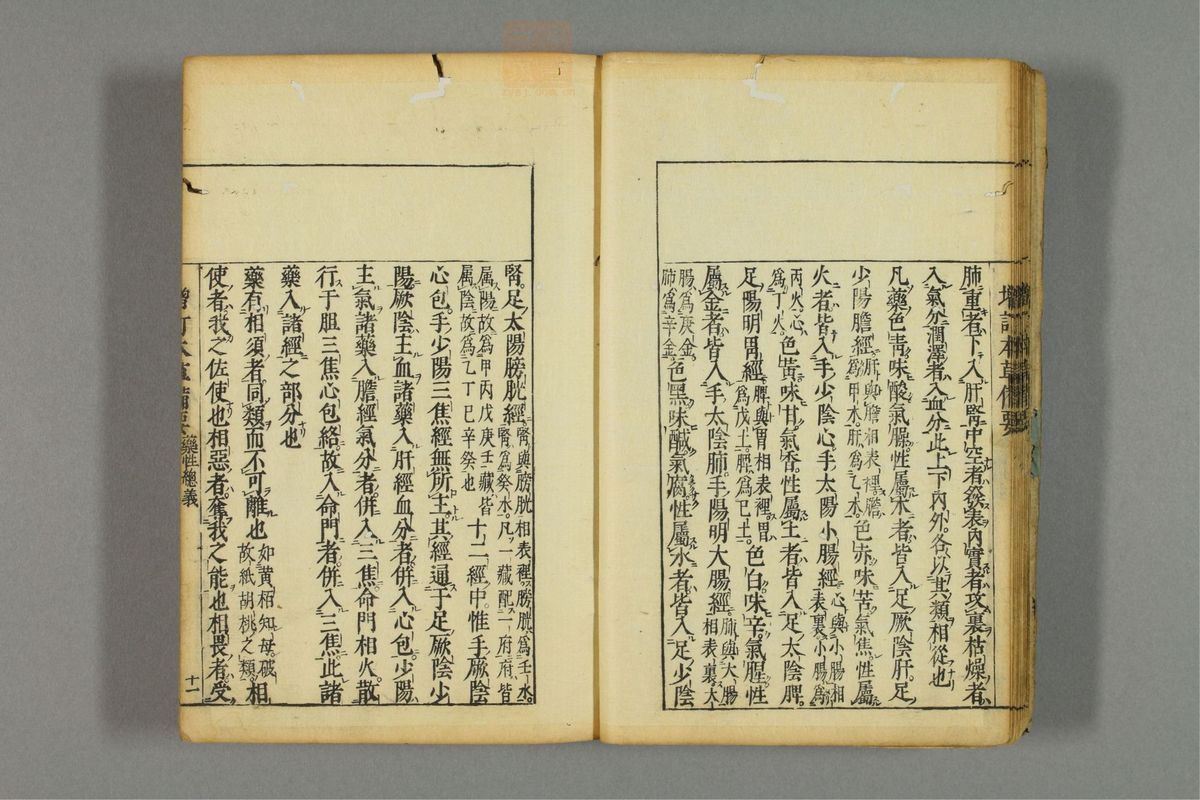 肺重者下入肝腎中空者發表内實者攻裏枯燥者
入氣分潤澤者入血分此上下内外各以其類相從也
凡藥色靑味酸氣臊性屬木者皆入足厥陰肝足
少陽膽經肝與膽相表裡膽爲甲木肝爲乙木色赤味苦氣焦性屬
火者皆入手少陰心手太陽小腸經心與小腸相表裏小腸爲
丙火心爲丁火色黃味甘氣香性屬土者皆入足太陰脾
足陽明胃經脾與胃相表裡胃爲戊土脾爲己土色白味辛氣腥性
屬金者皆入手太陰肺手陽明大腸經肺與大腸相表裏大
腸爲庚金肺爲辛金色黑味鹹氣腐性屬水者皆入足少陰
腎足太陽膀胱經腎與膀胱相表裡膀胱爲壬水腎爲癸水凡一藏配一府府皆
属陽故爲甲丙戊庚壬藏皆属陰故爲乙丁巳辛癸也十二經中惟手厥陰
心包手少陽三焦經無所主其經通于足厥陰少
陽厥陰主血諸藥入肝經血分者併入心包少陽
主氣諸藥入膽經氣分者併入三焦命門相火散
行于胆三焦心包絡故入命門者併入三焦此諸
藥入諸經之部分也
藥有相須者同類而不可離也如黃相知母破故紙胡桃之類相
使者我之佐使也相惡者奪我之能也相畏者受
藥性總義
十一